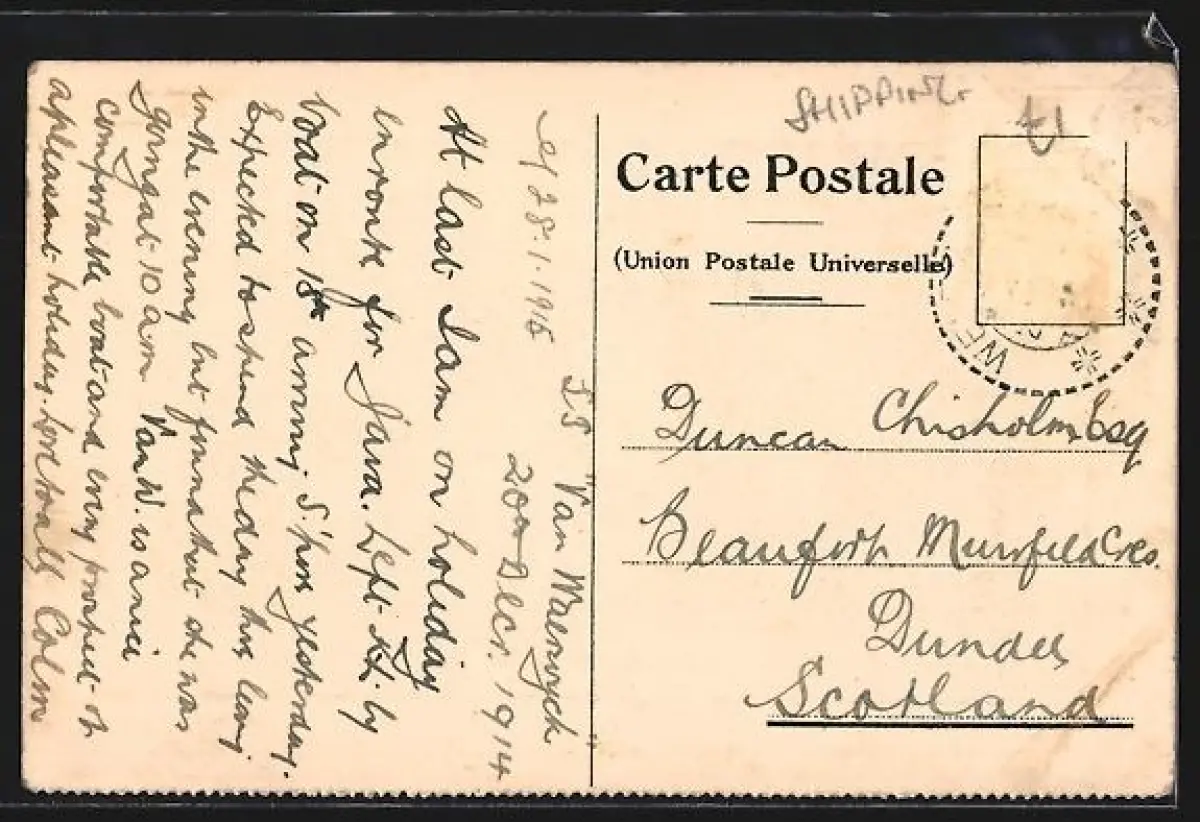 SHIPPING.
£1
Carte Postale
(Union Postale Universelle)
WE
Duncan Chisholm Esq
Beaufort Muirfield Cres.
Dundee
Scotland
28.1.1915
S S "Van Waerwyck"
20th Decr. 1914
At last I am on holiday
en route for Java. Left by
boat on 18th arriving S'pore yesterday.
Expected to spend the day there leaving
in the evening but found that she was
going at 10 am. Van W. is a nice
comfortable boat and every prospect of
a pleasant holiday. Love to all Colm